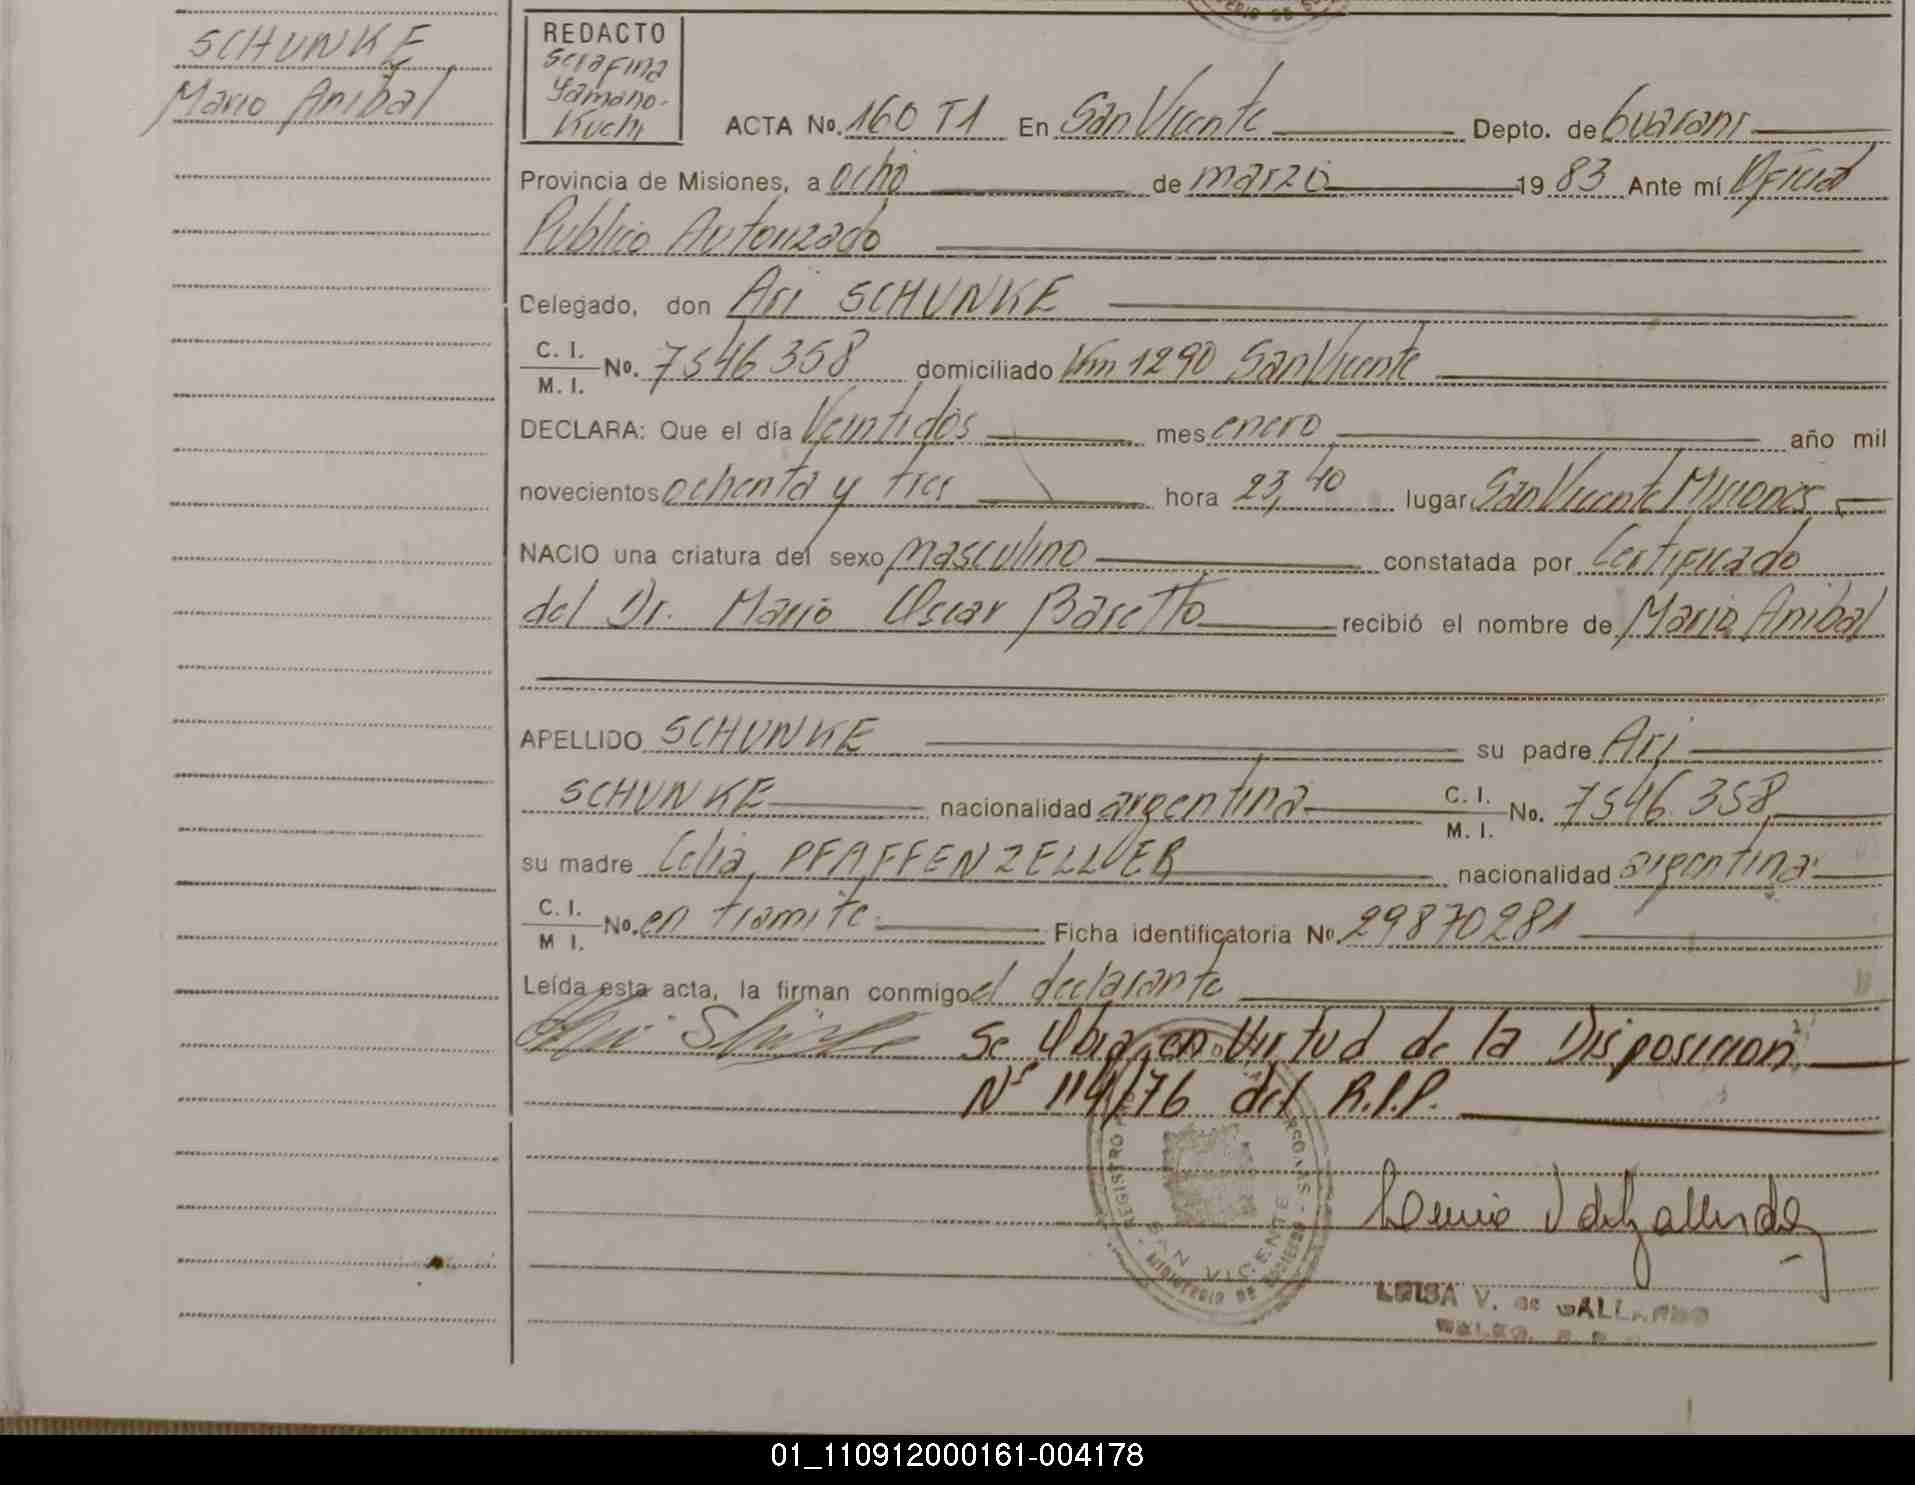 SCHUNKE
Mario Anibal
REDACTO
Serafina
Yamano-
Kuchi
ACTA No. 160 T1 En San Vicente Depto. de Guarani
Provincia de Misiones, a ocho de marzo 1983 Ante mí Oficial
Publico Autorizado
Delegado, don Ari SCHUNKE
C. I.
M. I. No. 7546358 domiciliado Km 1290 San Vicente
DECLARA: Que el día Veintidos mes enero año mil
novecientos ochenta y tres hora 23,40 lugar San Vicente Misiones
NACIO una criatura del sexo masculino constatada por Certificado
del Dr. Mario Oscar Baretto recibió el nombre de Mario Anibal
APELLIDO SCHUNKE su padre Ari
SCHUNKE nacionalidad argentina C. I. M. I. No. 7546.358
su madre Celia PFAFFENZELLER nacionalidad argentina
C. I.
M I. No. en tramite Ficha identificatoria No. 29870281
Leída esta acta, la firman conmigo el declarante
Se Obra en Virtud de la Disposicion
Nº 114/76 del R.P.P.
REGISTRO PERSONAS
SAN VICENTE
LUISA V. de GALLARDO
01_110912000161-004178